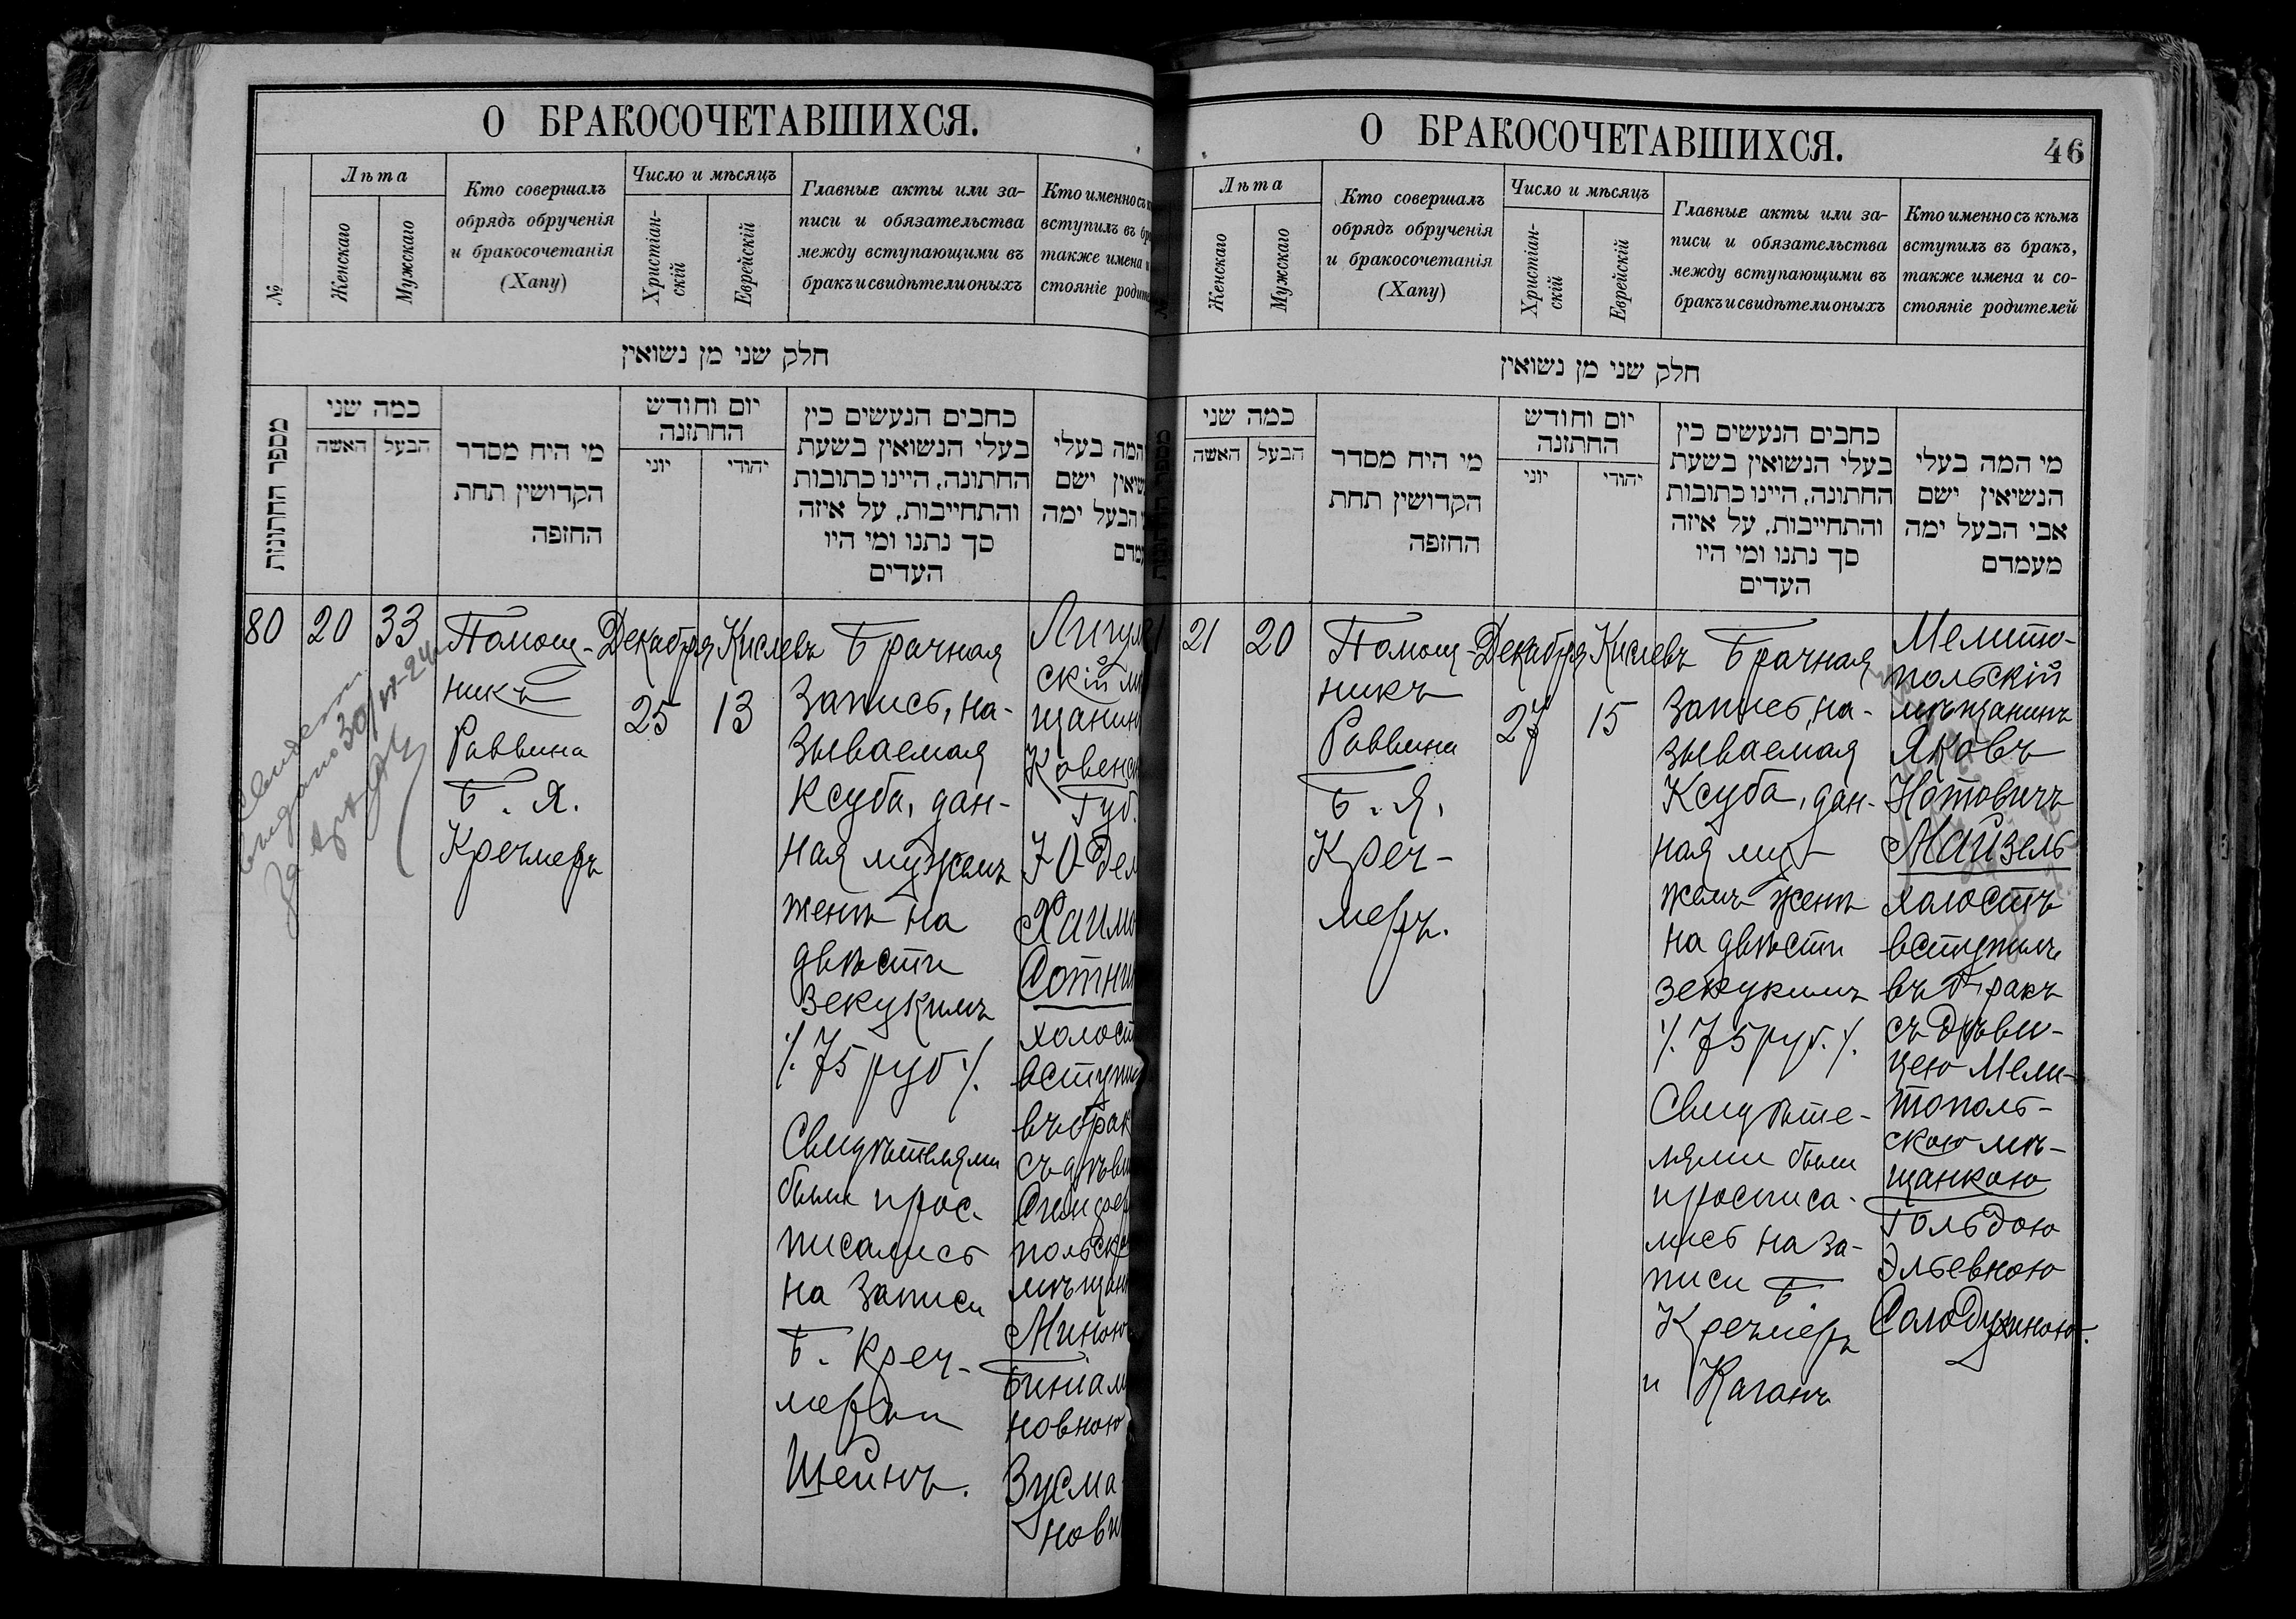 О БРАКОСОЧЕТАВШИХСЯ.
№
Лѣта
Женскаго
Мужскаго
Кто совершалъ
обрядъ обрученія
и бракосочетанія
(Хапу)
Число и мѣсяцъ
Христіан-
скій
Еврейскій
Главные акты или за-
писи и обязательства
между вступающими въ
бракъ и свидѣтели оныхъ
Кто именно съ
вступилъ въ
также имена
стояніе
חלק שני מן נשואין
מספר החתונות
כמה שני
האשה
הבעל
מי היח מסדר
הקדושין תחת
החופה
יום וחודש
החתונה
יוני
יהודי
כחבים הנעשים כין
בעלי הנשואין בשעת
החתונה, היינו כתובות
והתחייבות, על איזה
סך נתנו ומי היו
העדים
המה בעלי
ישם
הבעל ימה
80
20
33
Помощ-
никъ
Раввина
Б. Я.
Кречмеръ
Декабря
25
Кислевъ
13
Брачная
запись, на-
зываемая
Ксуба, дан-
ная мужемъ
женѣ на
двѣсти
зекукимъ
/. 75 руб /.
Свидѣтелями
были и рос-
писались
на записи
Б. Креч-
меръ и
Штейнъ.
скій
Губ.
въ
съ
Зусма-
О БРАКОСОЧЕТАВШИХСЯ.
46
Лѣта
Женскаго
Мужскаго
Кто совершалъ
обрядъ обрученія
и бракосочетанія
(Хапу)
Число и мѣсяцъ
Христіан-
скій
Еврейскій
Главные акты или за-
писи и обязательства
между вступающими въ
бракъ и свидѣтели оныхъ
Кто именно съ кѣмъ
вступилъ въ бракъ,
также имена и со-
стояніе родителей
חלק שני מן נשואין
כמה שני
האשה
הבעל
מי היח מסדר
הקדושין תחת
החופה
יום וחודש
החתונה
יוני
יהודי
כחבים הנעשים כין
בעלי הנשואין בשעת
החתונה, היינו כתובות
והתחייבות, על איזה
סך נתנו ומי היו
העדים
מי המה בעלי
הנשיאין ישם
אבי הבעל ימה
מעמדם
21
20
Помощ-
никъ
Раввина
Б. Я.
Креч-
меръ.
Декабря
27
Кислевъ
15
Брачная
запись, на-
зываемая
Ксуба, дан-
ная му-
жемъ женѣ
на двѣсти
зекукимъ
/. 75 руб. /.
Свидѣте-
лями были
и росписа-
лись на за-
писи Б
Кречмеръ
и Каганъ
Мелито-
польскій
мѣщанинъ
Яковъ
Нотовичъ
Майзель
холостъ
вступилъ
въ бракъ
съ дѣви-
цею Мели-
тополь-
скою мѣ-
щанкою
Гольдою
Эльевною
Солодухиною.